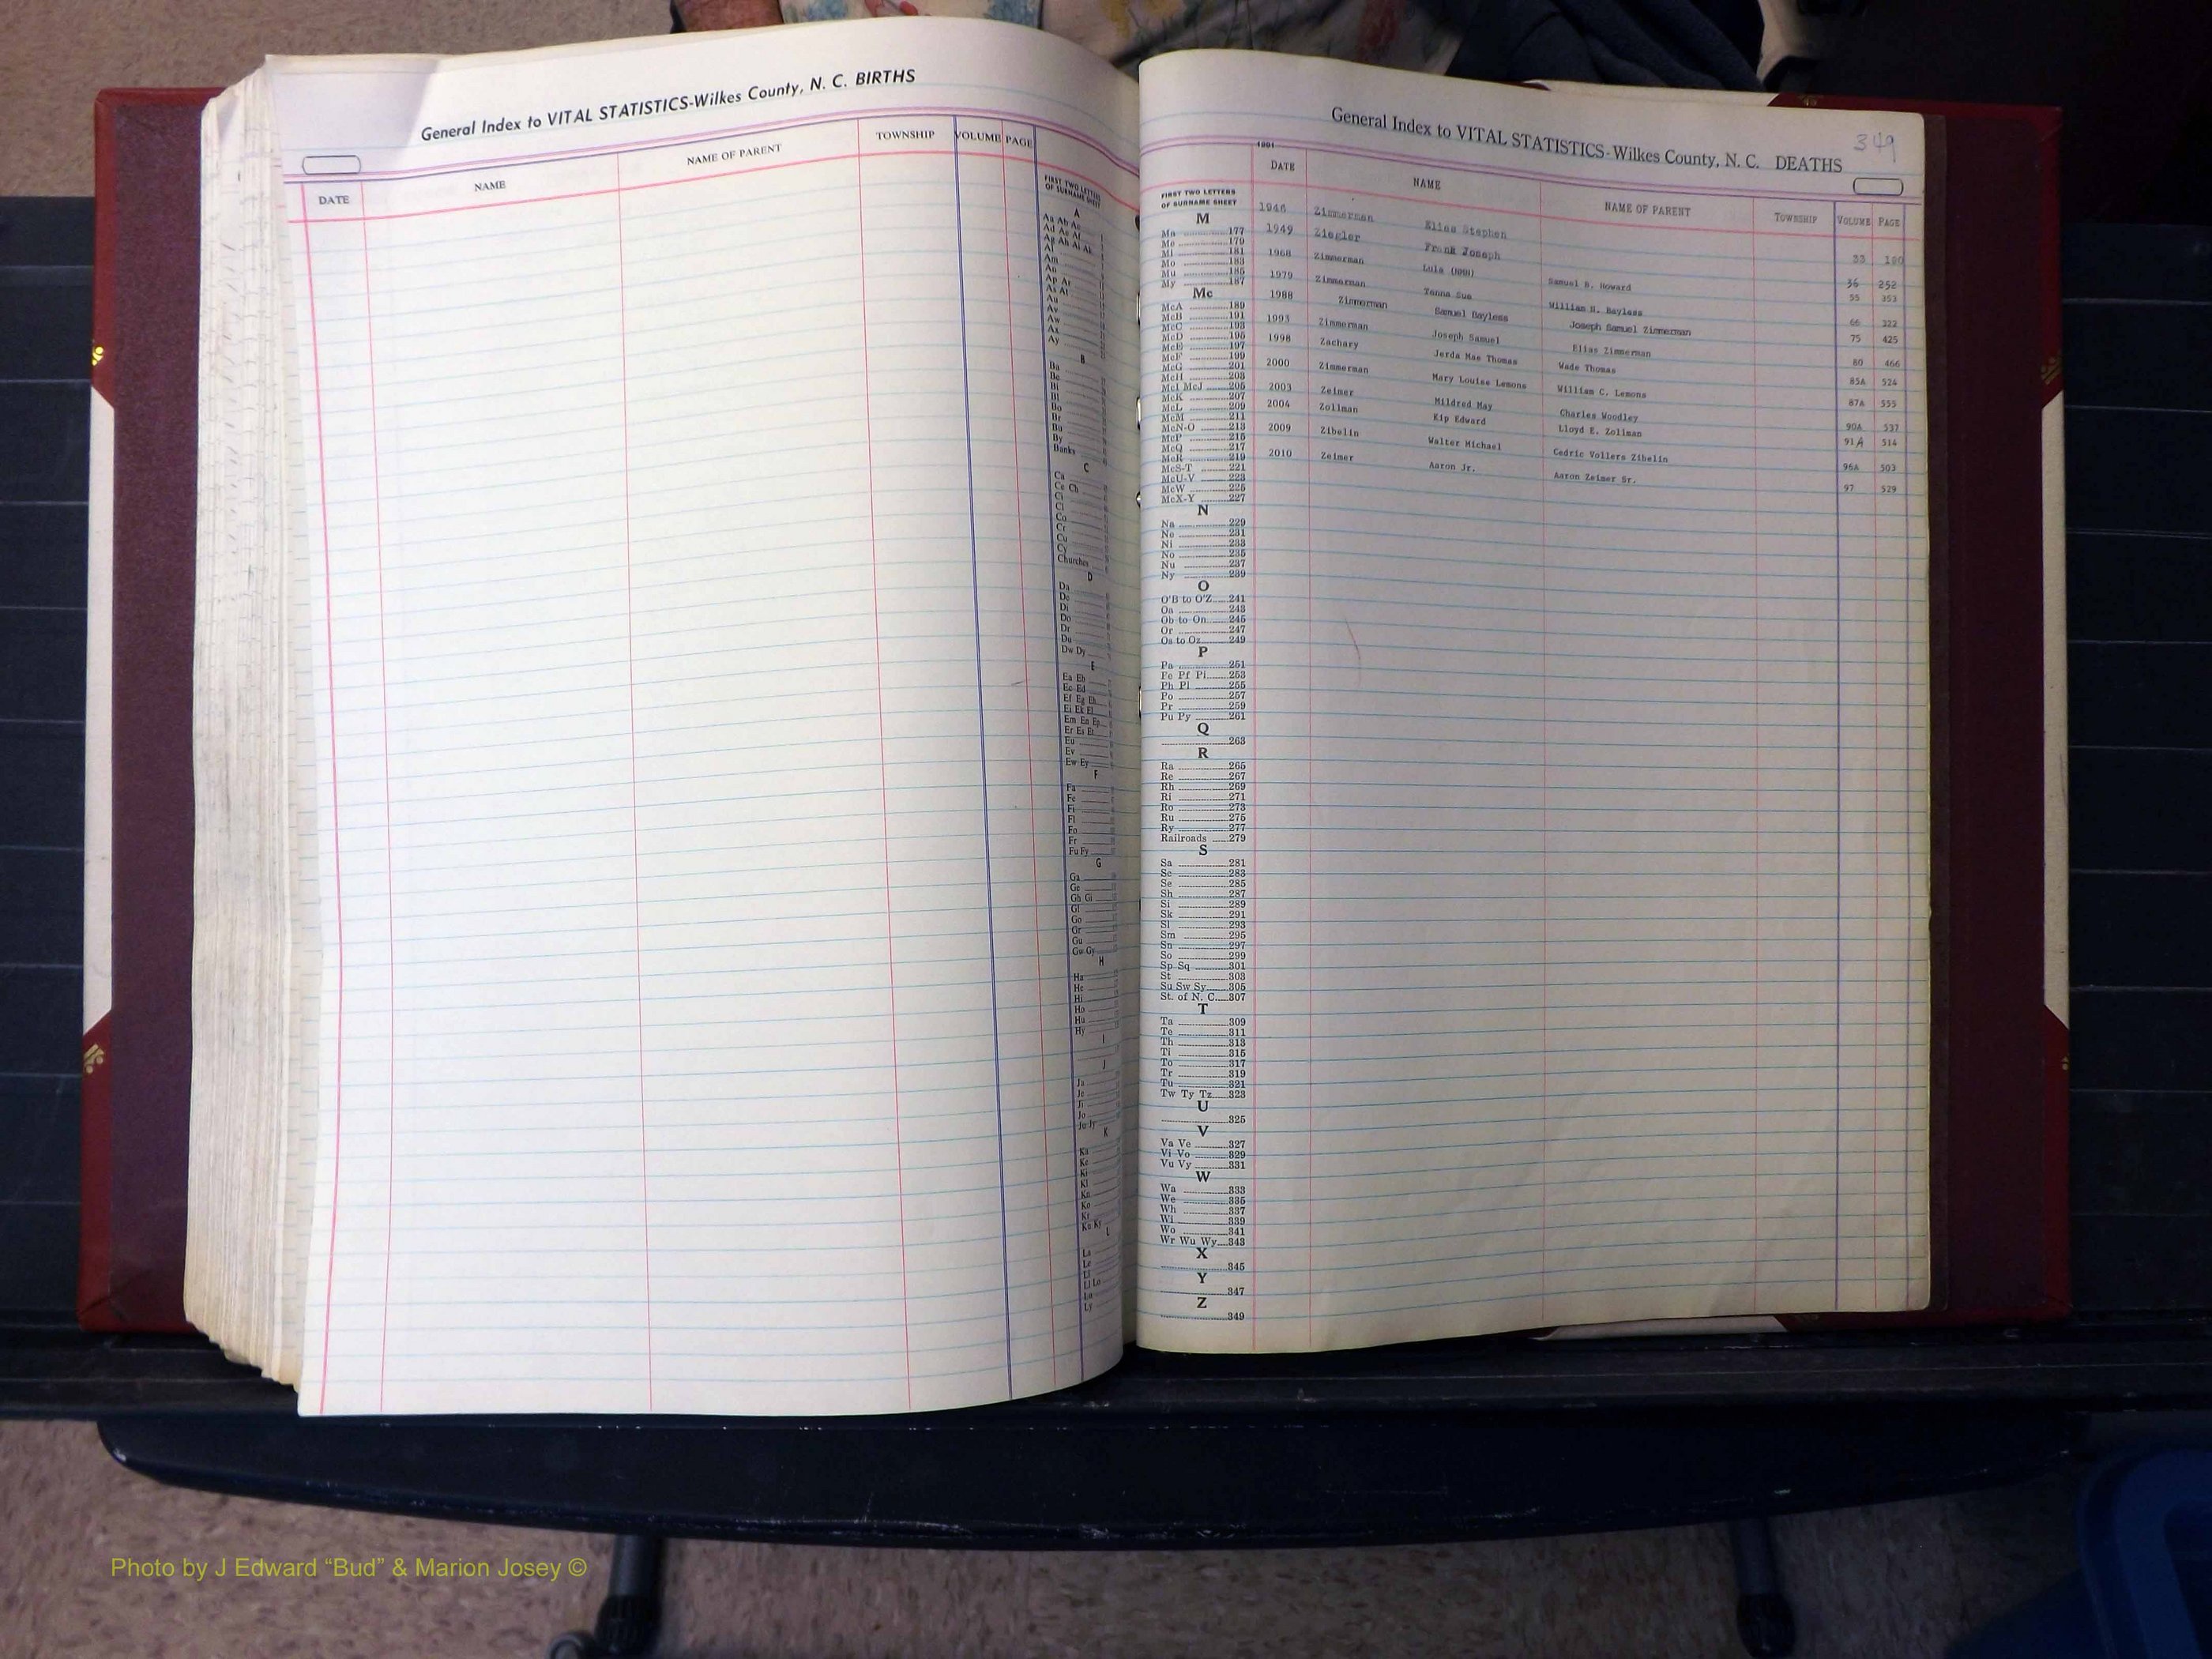 General Index to VITAL STATISTICS-Wilkes County, N. C. BIRTHS
DATE NAME NAME OF PARENT TOWNSHIP VOLUME PAGE
FIRST TWO LETTERS
OF SURNAME SHEET
A
Aa Ab Ac
Ad Ae Af
Ag Ah Ai Ak
Al
Am
An
Ap Ar
As At
Au
Av
Aw
Ax
Ay
B
Ba
Be
Bi
Bl
Bo
Br
Bu
By
Banks
C
Ca
Ce Ch
Ci
Cl
Co
Cr
Cu
Cy
Churches
D
Da
De
Di
Do
Dr
Du
Dw Dy
E
Ea Eb
Ec Ed
Ef Eg Eh
Ei Ek El
Em En Ep
Er Es Et
Eu
Ev
Ew Ey
F
Fa
Fe
Fi
Fl
Fo
Fr
Fu Fy
G
Ga
Ge
Gh Gi
Gl
Go
Gr
Gu
Gw Gy
H
Ha
He
Hi
Ho
Hu
Hy
I
J
Ja
Je
Ji
Jo
Ju Jy
K
Ka
Ke
Ki
Kl
Kn
Ko
Kr
Ku Ky
L
La
Le
Li
Ll Lo
Lu
Ly
349
General Index to VITAL STATISTICS-Wilkes County, N. C. DEATHS
1991
DATE NAME NAME OF PARENT TOWNSHIP VOLUME PAGE
1946 Zimmerman Elias Stephen 33 190
1949 Ziegler Frank Joseph 36 252
1968 Zimmerman Lula (NMN) Samuel B. Howard 55 353
1979 Zimmerman Tenna Sue William H. Bayless 66 322
1988 Zimmerman Samuel Bayless Joseph Samuel Zimmerman 75 425
1993 Zimmerman Joseph Samuel Elias Zimmerman 80 466
1998 Zachary Jerda Mae Thomas Wade Thomas 85A 524
2000 Zimmerman Mary Louise Lemons William C. Lemons 87A 555
2003 Zeimer Mildred May Charles Woodley 90A 537
2004 Zollman Kip Edward Lloyd E. Zollman 91A 514
2009 Zibelin Walter Michael Cedric Vollers Zibelin 96A 503
2010 Zeimer Aaron Jr. Aaron Zeimer Sr. 97 529
FIRST TWO LETTERS
OF SURNAME SHEET
M
Ma 177
Me 179
Mi 181
Mo 183
Mu 185
My 187
Mc
McA 189
McB 191
McC 193
McD 195
McE 197
McF 199
McG 201
McH 203
McI McJ 205
McK 207
McL 209
McM 211
McN-O 213
McP 215
McQ 217
McR 219
McS-T 221
McU-V 223
McW 225
McX-Y 227
N
Na 229
Ne 231
Ni 233
No 235
Nu 237
Ny 239
O
O'B to O'Z 241
Oa 243
Ob to On 245
Or 247
Os to Oz 249
P
Pa 251
Pe Pf Pi 253
Ph Pl 255
Po 257
Pr 259
Pu Py 261
Q
263
R
Ra 265
Re 267
Rh 269
Ri 271
Ro 273
Ru 275
Ry 277
Railroads 279
S
Sa 281
Sc 283
Se 285
Sh 287
Si 289
Sk 291
Sl 293
Sm 295
Sn 297
So 299
Sp Sq 301
St 303
Su Sw Sy 305
St. of N. C. 307
T
Ta 309
Te 311
Th 313
Ti 315
To 317
Tr 319
Tu 321
Tw Ty Tz 323
U
325
V
Va Ve 327
Vi Vo 329
Vu Vy 331
W
Wa 333
We 335
Wh 337
Wi 339
Wo 341
Wr Wu Wy 343
X
345
Y
347
Z
349
Photo by J Edward “Bud” & Marion Josey ©